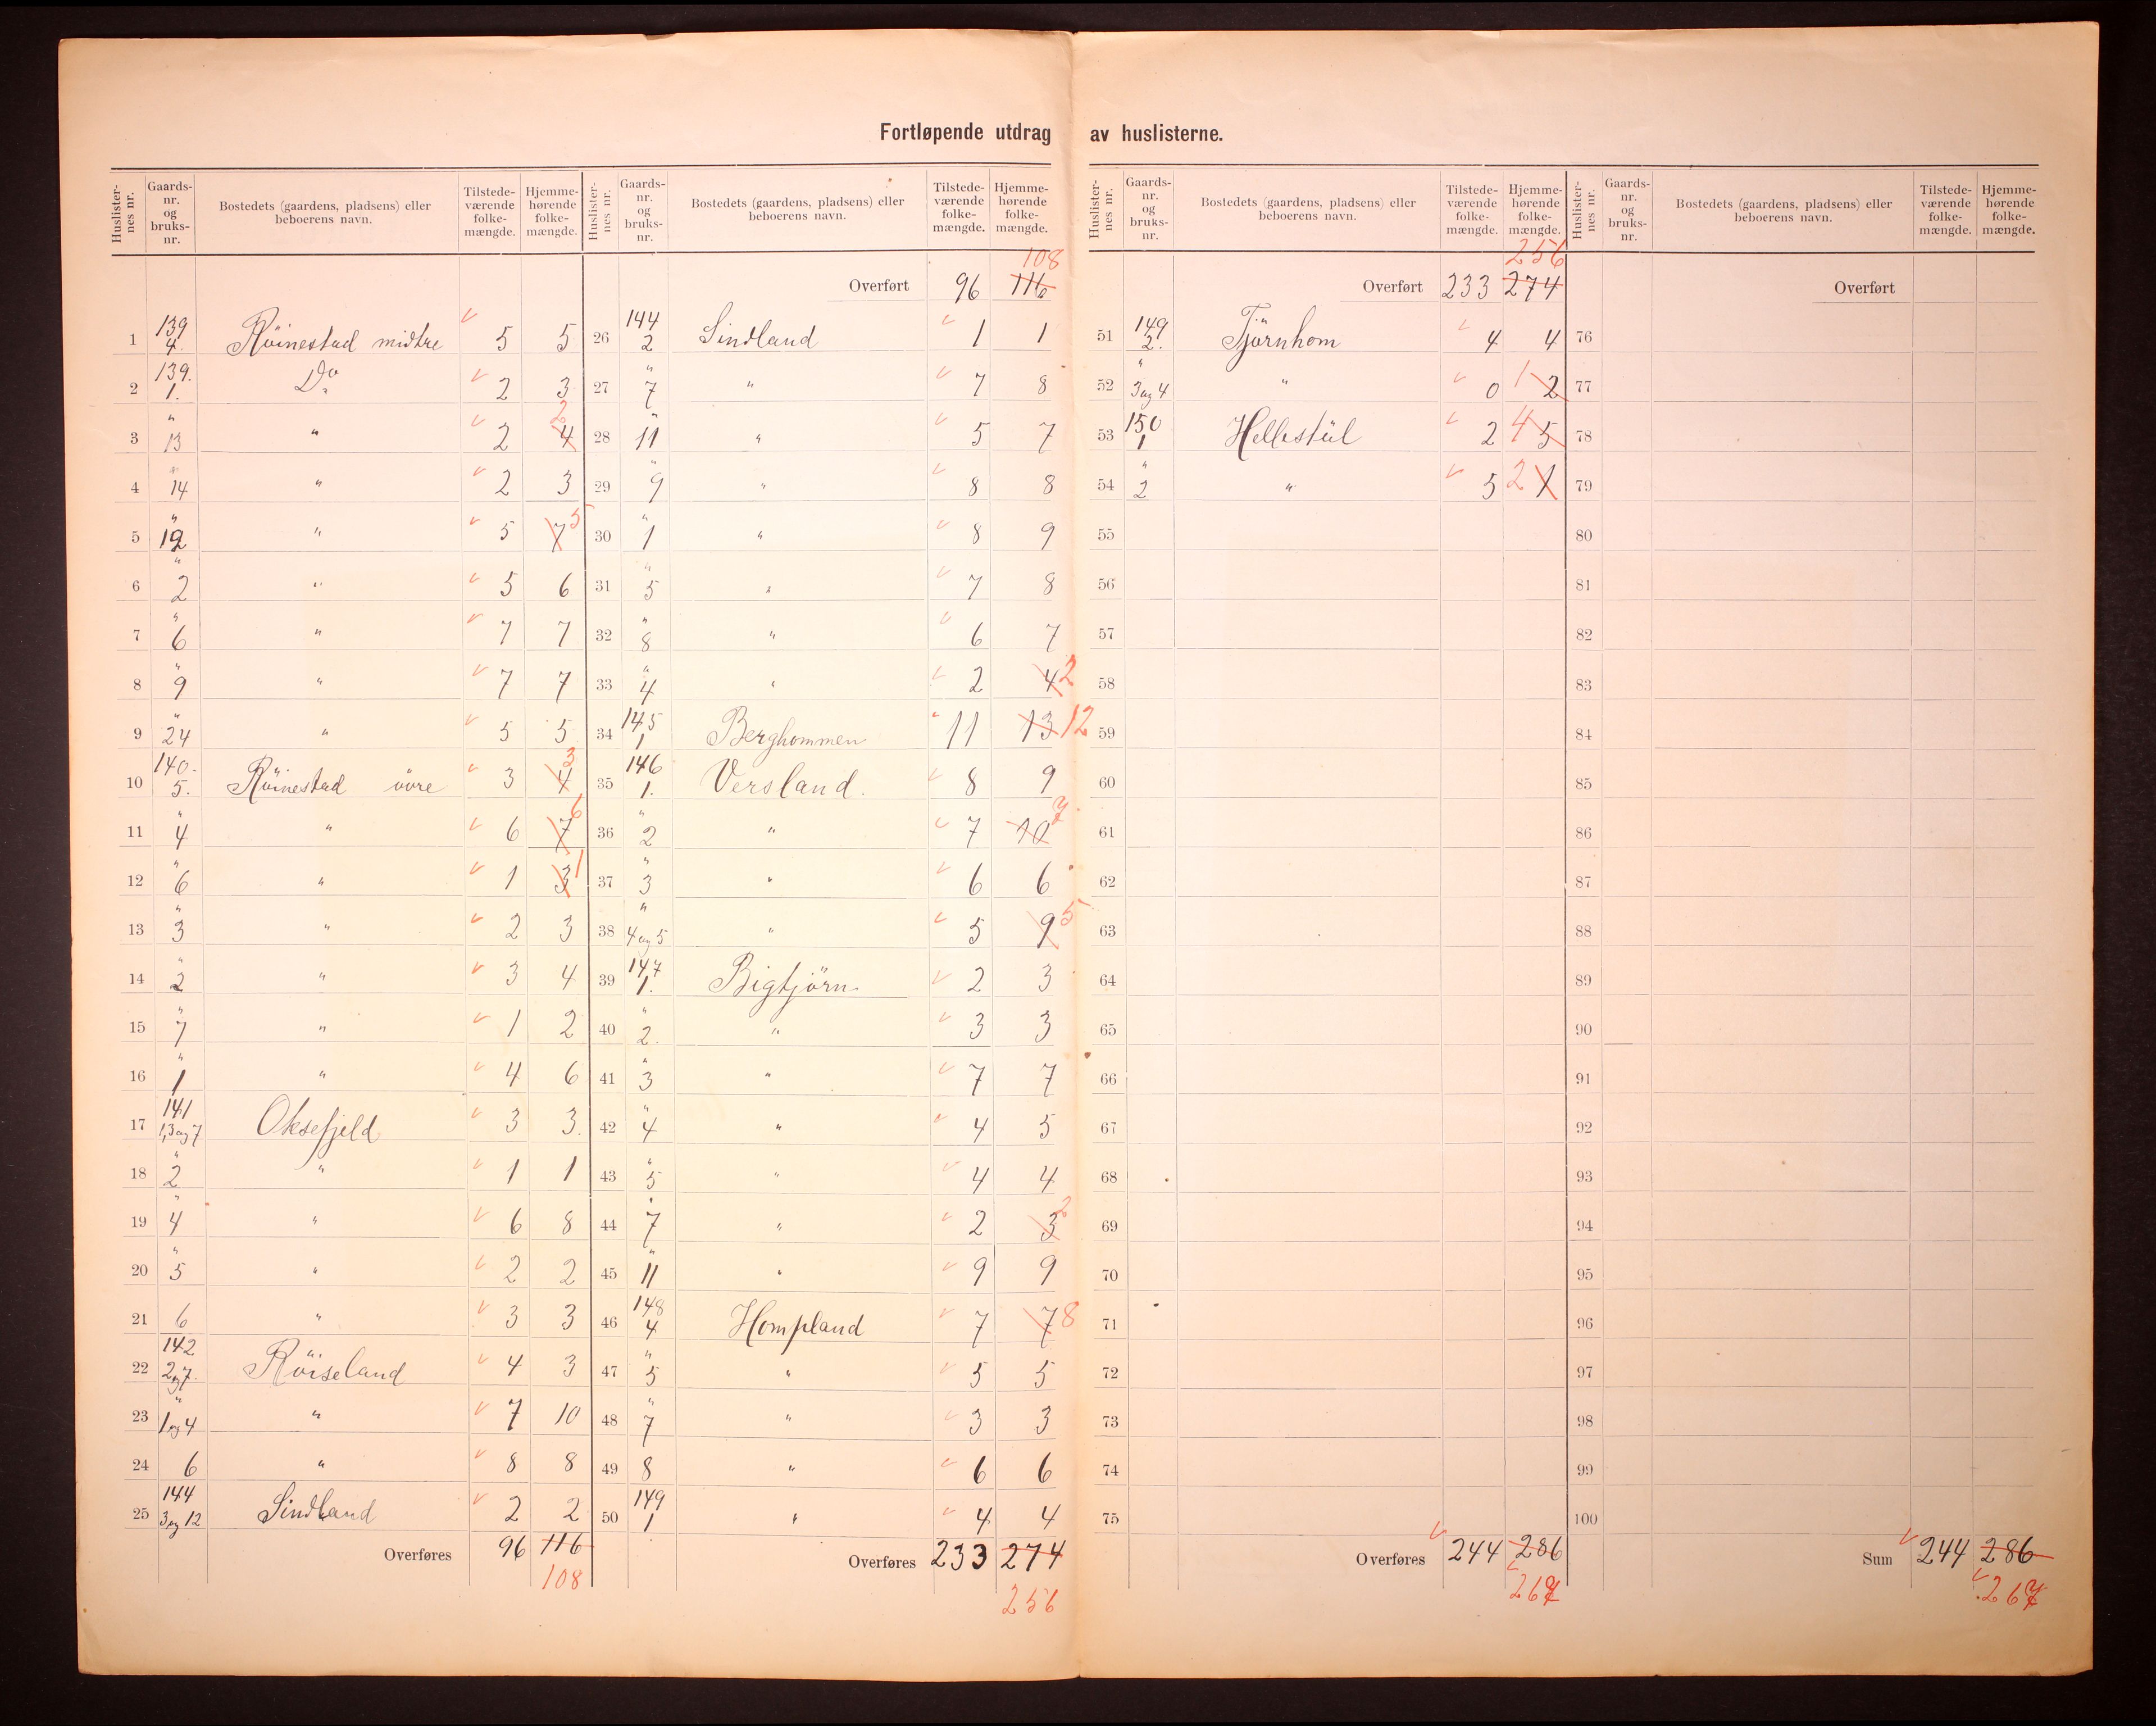 Fortløpende utdrag av huslisterne.
Huslisternes nr. Gaards-nr. og bruks-nr. Bostedets (gaardens, pladsens) eller beboerens navn. Tilstede-værende folke-mængde. Hjemme-hørende folke-mængde.
1 139 4. Röinestad midtre 5 5
2 139. 1. Do 2 3
3 " 13 " 2 4 2
4 " 14 " 2 3
5 " 12 " 5 7 5
6 " 2 " 5 6
7 " 6 " 7 7
8 " 9 " 7 7
9 " 24 " 5 5
10 140. 5. Röinestad övre 3 4 3
11 " 4 " 6 7 6
12 " 6 " 1 3 1
13 " 3 " 2 3
14 " 2 " 3 4
15 " 7 " 1 2
16 " 1 " 4 6
17 141 1,3 og 7 Oksefjeld 3 3.
18 " 2 " 1 1
19 " 4 " 6 8
20 " 5 " 2 2
21 6 " 3 3
22 142 2 og 7. Röiseland 4 3
23 " 1 og 4 " 7 10
24 6 " 8 8
25 144 3 og 12 Sindland 2 2
Overføres 96 116
108
Huslisternes nr. Gaards-nr. og bruks-nr. Bostedets (gaardens, pladsens) eller beboerens navn. Tilstede-værende folke-mængde. Hjemme-hørende folke-mængde.
108
Overført 96 116
26 144 2 Sindland 1 1
27 " 7 " 7 8
28 " 11 " 5 7
29 " 9 " 8 8
30 " 1 " 8 9
31 " 5 " 7 8
32 " 8 " 6 7
33 " 4 " 2 4 2
34 145 1 Berghommen 11 13 12
35 146 1. Versland. 8 9
36 " 2 " 7 10 7
37 " 3 " 6 6
38 " 4 og 5 " 5 9 5
39 147 1. Bigtjörn 2 3
40 " 2. " 3 3
41 " 3 " 7 7
42 " 4 " 4 5
43 " 5 " 4 4
44 " 7 " 2 3 2
45 " 11 " 9 9
46 148 4 Hompland 7 7 8
47 " 5 " 5 5
48 " 7 " 3 3
49 8 " 6 6
50 149 1 " 4 4
Overføres 233 274
256
Huslisternes nr. Gaards-nr. og bruks-nr. Bostedets (gaardens, pladsens) eller beboerens navn. Tilstede-værende folke-mængde. Hjemme-hørende folke-mængde.
256
Overført 233 274
51 149 2. Tjörnhom 4 4
52 " 3 og 4 " 0 1 2
53 150 1 Hellestül 2 4 5
54 " 2 " 5 2 1
55
56
57
58
59
60
61
62
63
64
65
66
67
68
69
70
71
72
73
74
75
Overføres 244 286
267
Huslisternes nr. Gaards-nr. og bruks-nr. Bostedets (gaardens, pladsens) eller beboerens navn. Tilstede-værende folke-mængde. Hjemme-hørende folke-mængde.
Overført
76
77
78
79
80
81
82
83
84
85
86
87
88
89
90
91
92
93
94
95
96
97
98
99
100
Sum 244 286
267